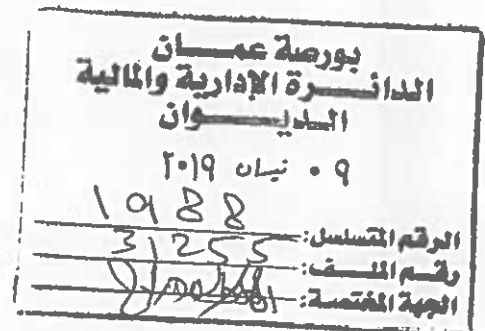 بورصة عمـــان
الدائـــرة الإدارية والمالية
الديـــوان
٠٩ نيسان ٢٠١٩
الرقم المتسلسل: 1988
رقـم الملـــف: 31255
الجهة المختصة: